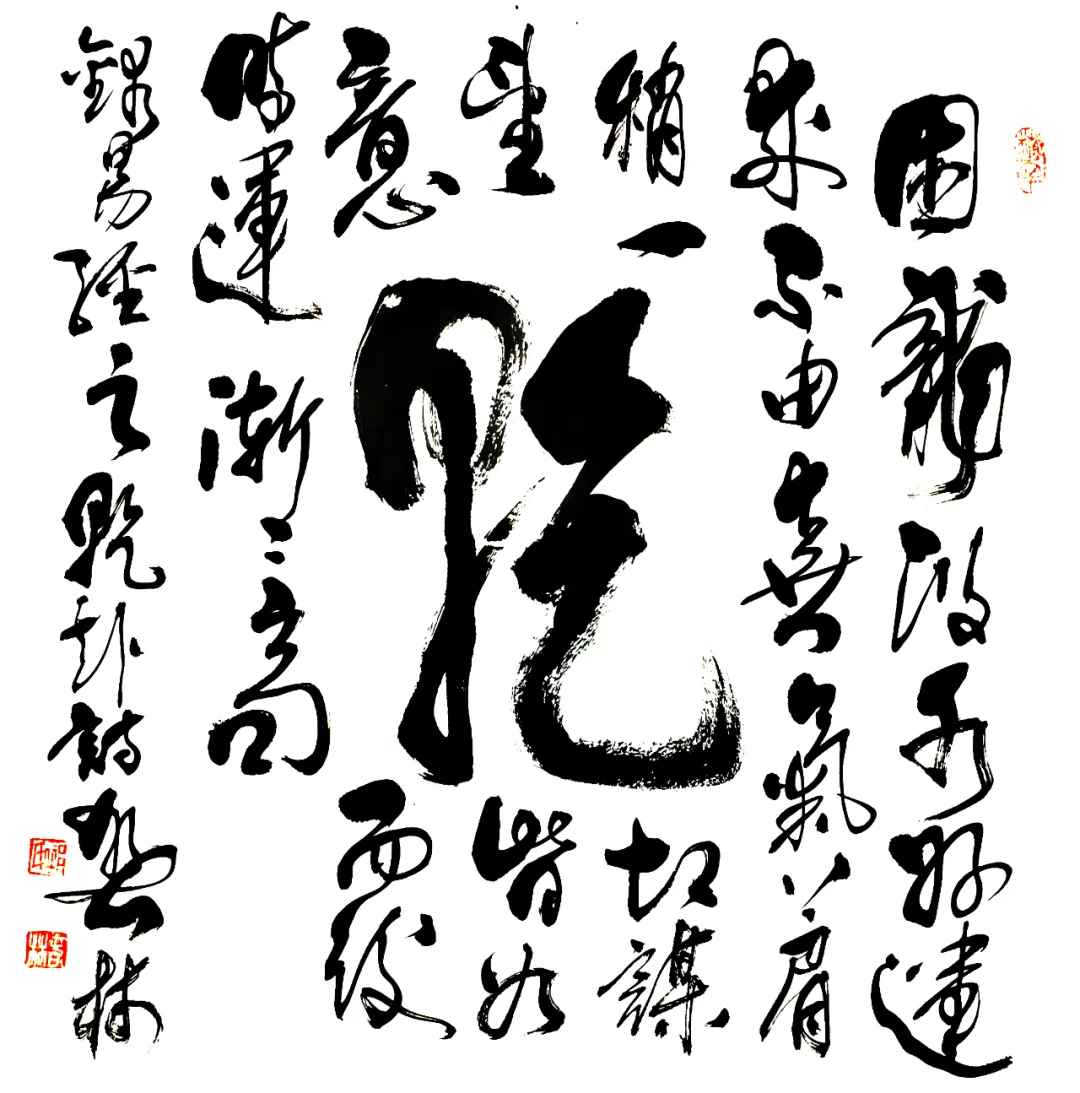 困龍得水好運
不由喜氣上眉
梢一切謀
望皆如
意而後
時運漸々高
乾
錄易經之乾卦詩 林